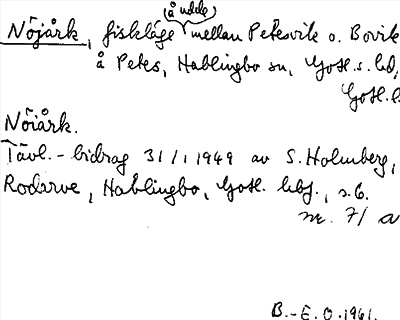 å udde
Nöjårk, fiskläge mellan Petesvik o. Bovik
å Petes, Hablingbo sn, Gotl. s. hd,
Gotl. l.
Nöiårk.
Tävl.-bidrag 31/1 1949 av S. Holmberg,
Rodarve, Hablingbo, Gotl. lbf., s. 6.
nr. 7/ a
B.-E. O. 1961.